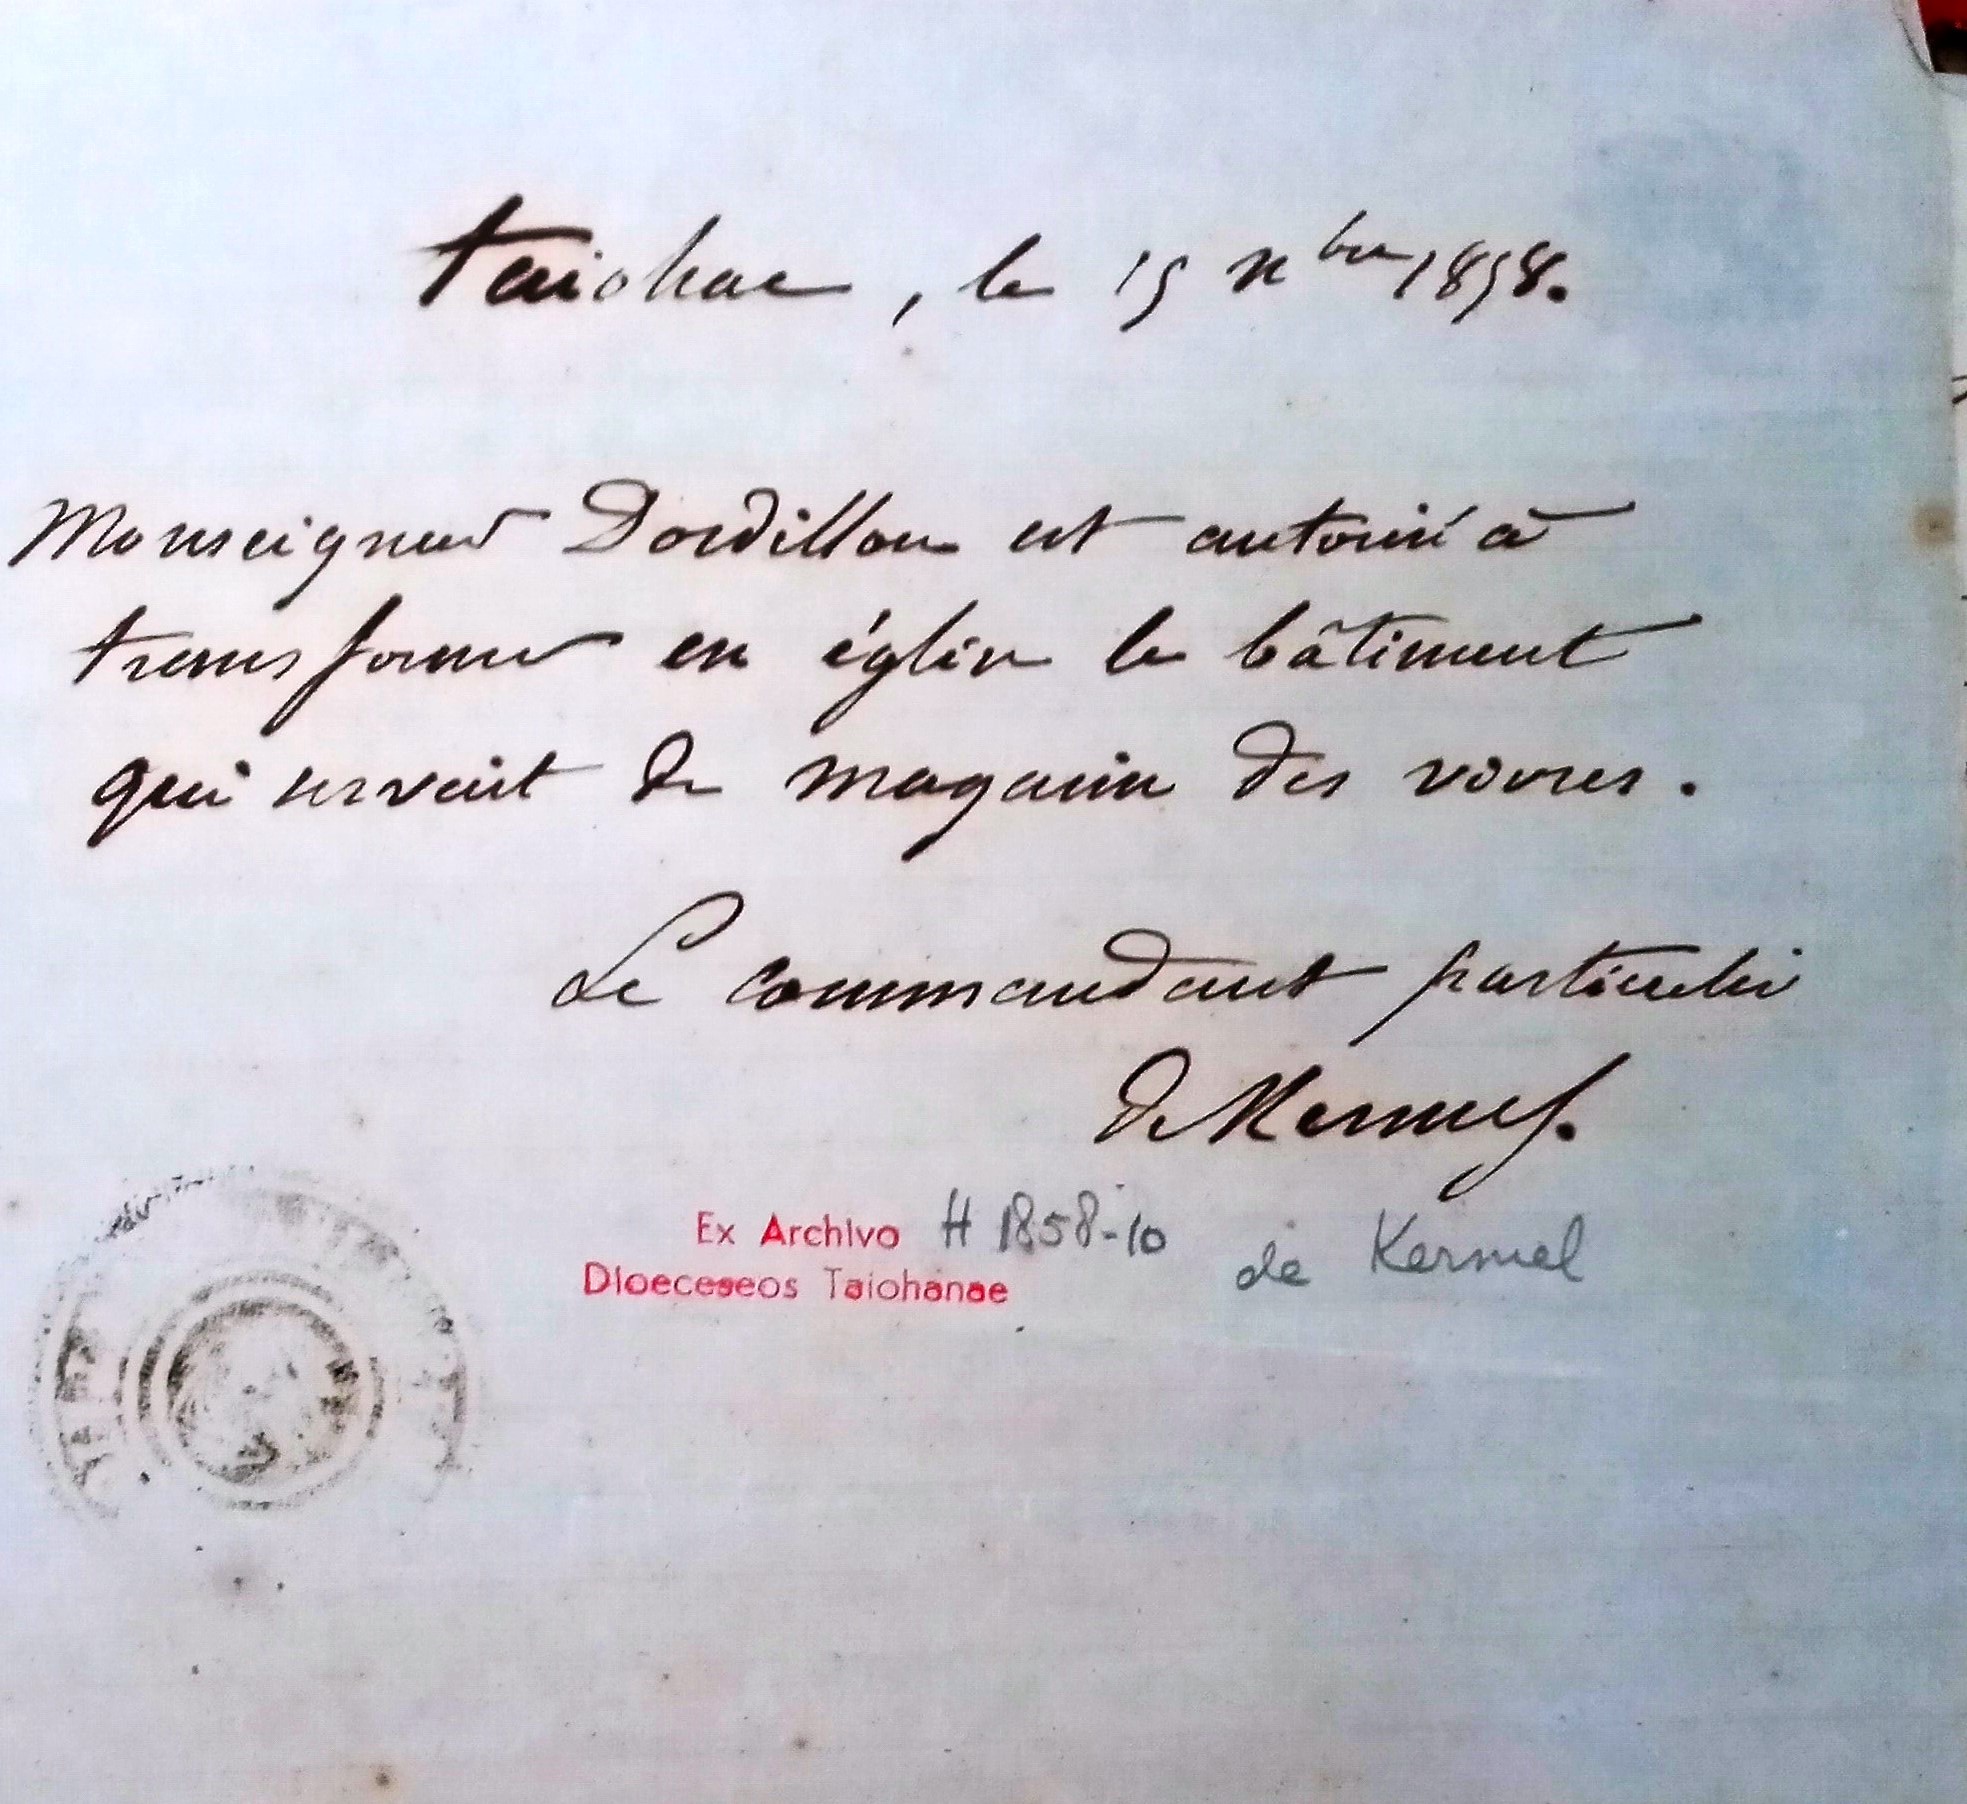 Taiohae, le 15 xbre 1858.
Monseigneur Dordillon est autorisé à
transformer en église le bâtiment
qui servait de magasin des vivres.
Le commandant particulier
de Kermel.
Ex Archivo H 1858-10
Dioeceseos Taiohanae
de Kermel